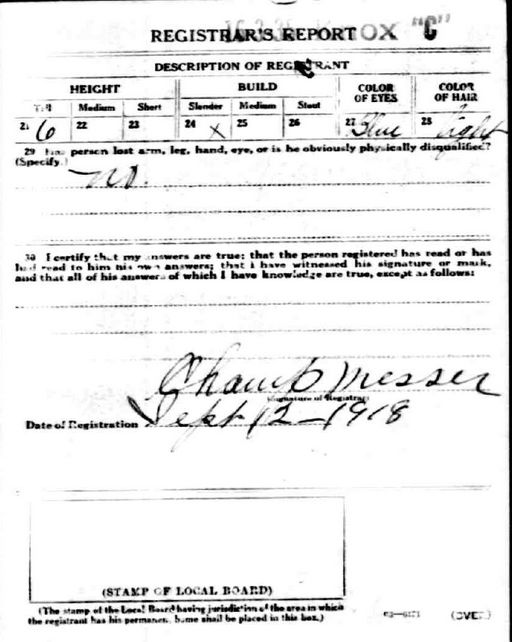 REGISTRAR'S REPORT OX "C"
DESCRIPTION OF REGISTRANT
HEIGHT BUILD COLOR OF EYES COLOR OF HAIR
Tall Medium Short Slender Medium Stout
21 6 22 23 24 X 25 26 27 Blue 28 light
29 Has person lost arm, leg, hand, eye, or is he obviously physically disqualified?
(Specify.)
no.
30 I certify that my answers are true; that the person registered has read or has
had read to him his own answers; that I have witnessed his signature or mark,
and that all of his answers of which I have knowledge are true, except as follows:
Champ Messer
(Signature of Registrar)
Date of Registration Sept 12-1918
(STAMP OF LOCAL BOARD)
(The stamp of the Local Board having jurisdiction of the area in which
the registrant has his permanent home shall be placed in this box.)
(OVER)